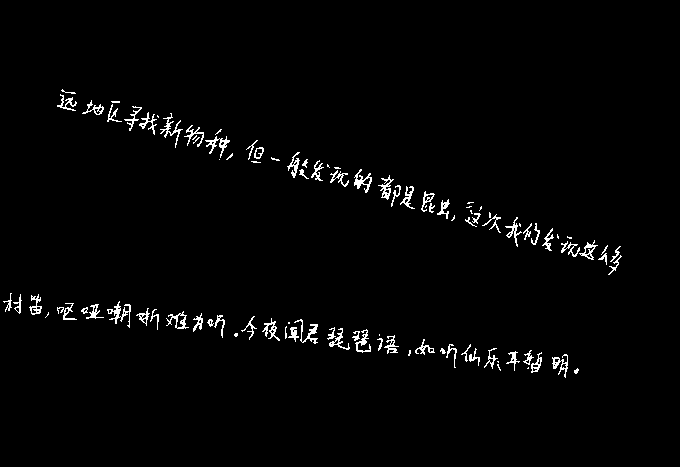 远地区寻找新物种,但一般发现的都是昆虫,这次我们发现这么多
村笛,呕哑嘲哳难为听.今夜闻君琵琶语,如听仙乐耳暂明。